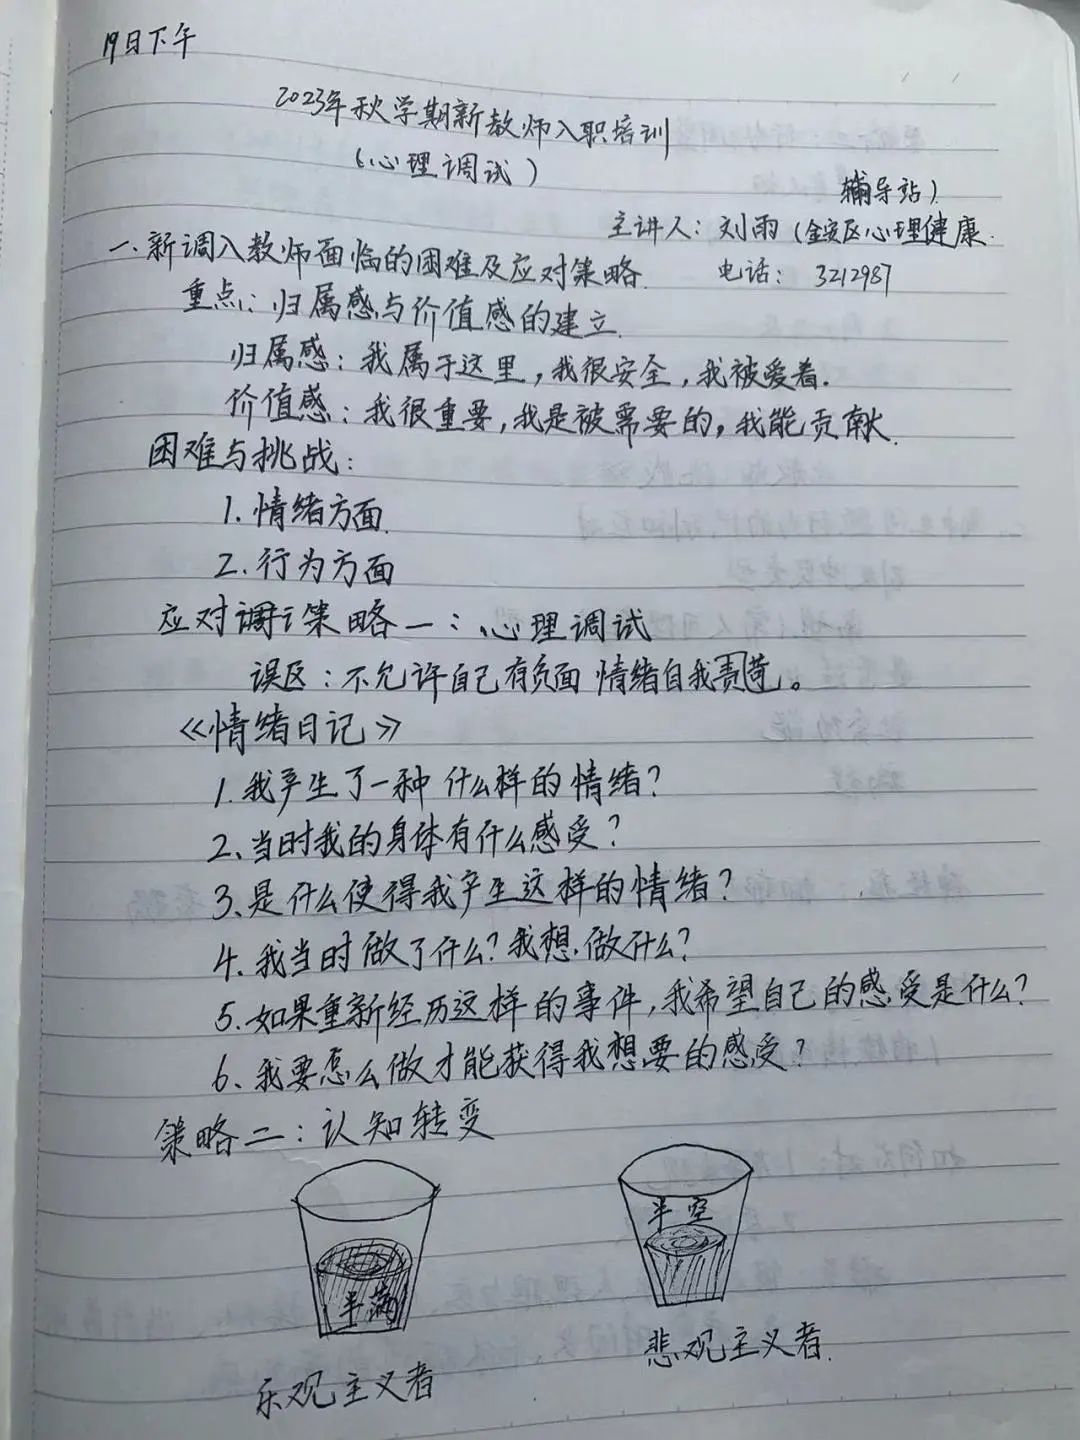 19日下午
2023年秋学期新教师入职培训
(心理调试)
主讲人：刘雨(金安区心理健康
辅导站)
一.新调入教师面临的困难及应对策略.
电话：3212987
重点：归属感与价值感的建立.
归属感：我属于这里,我很安全,我被爱着.
价值感：我很重要,我是被需要的,我能贡献.
困难与挑战：
1.情绪方面.
2.行为方面
应对调试策略一：心理调试
误区：不允许自己有负面情绪自我责苛。
《情绪日记》
1.我产生了一种什么样的情绪？
2、当时我的身体有什么感受？
3、是什么使得我产生这样的情绪？
4.我当时做了什么？我想.做什么？
5.如果重新经历这样的事件,我希望自己的感受是什么？
6、我要怎么做才能获得我想要的感受？
策略二：认知转变
半空
半满
悲观主义者.
乐观主义者